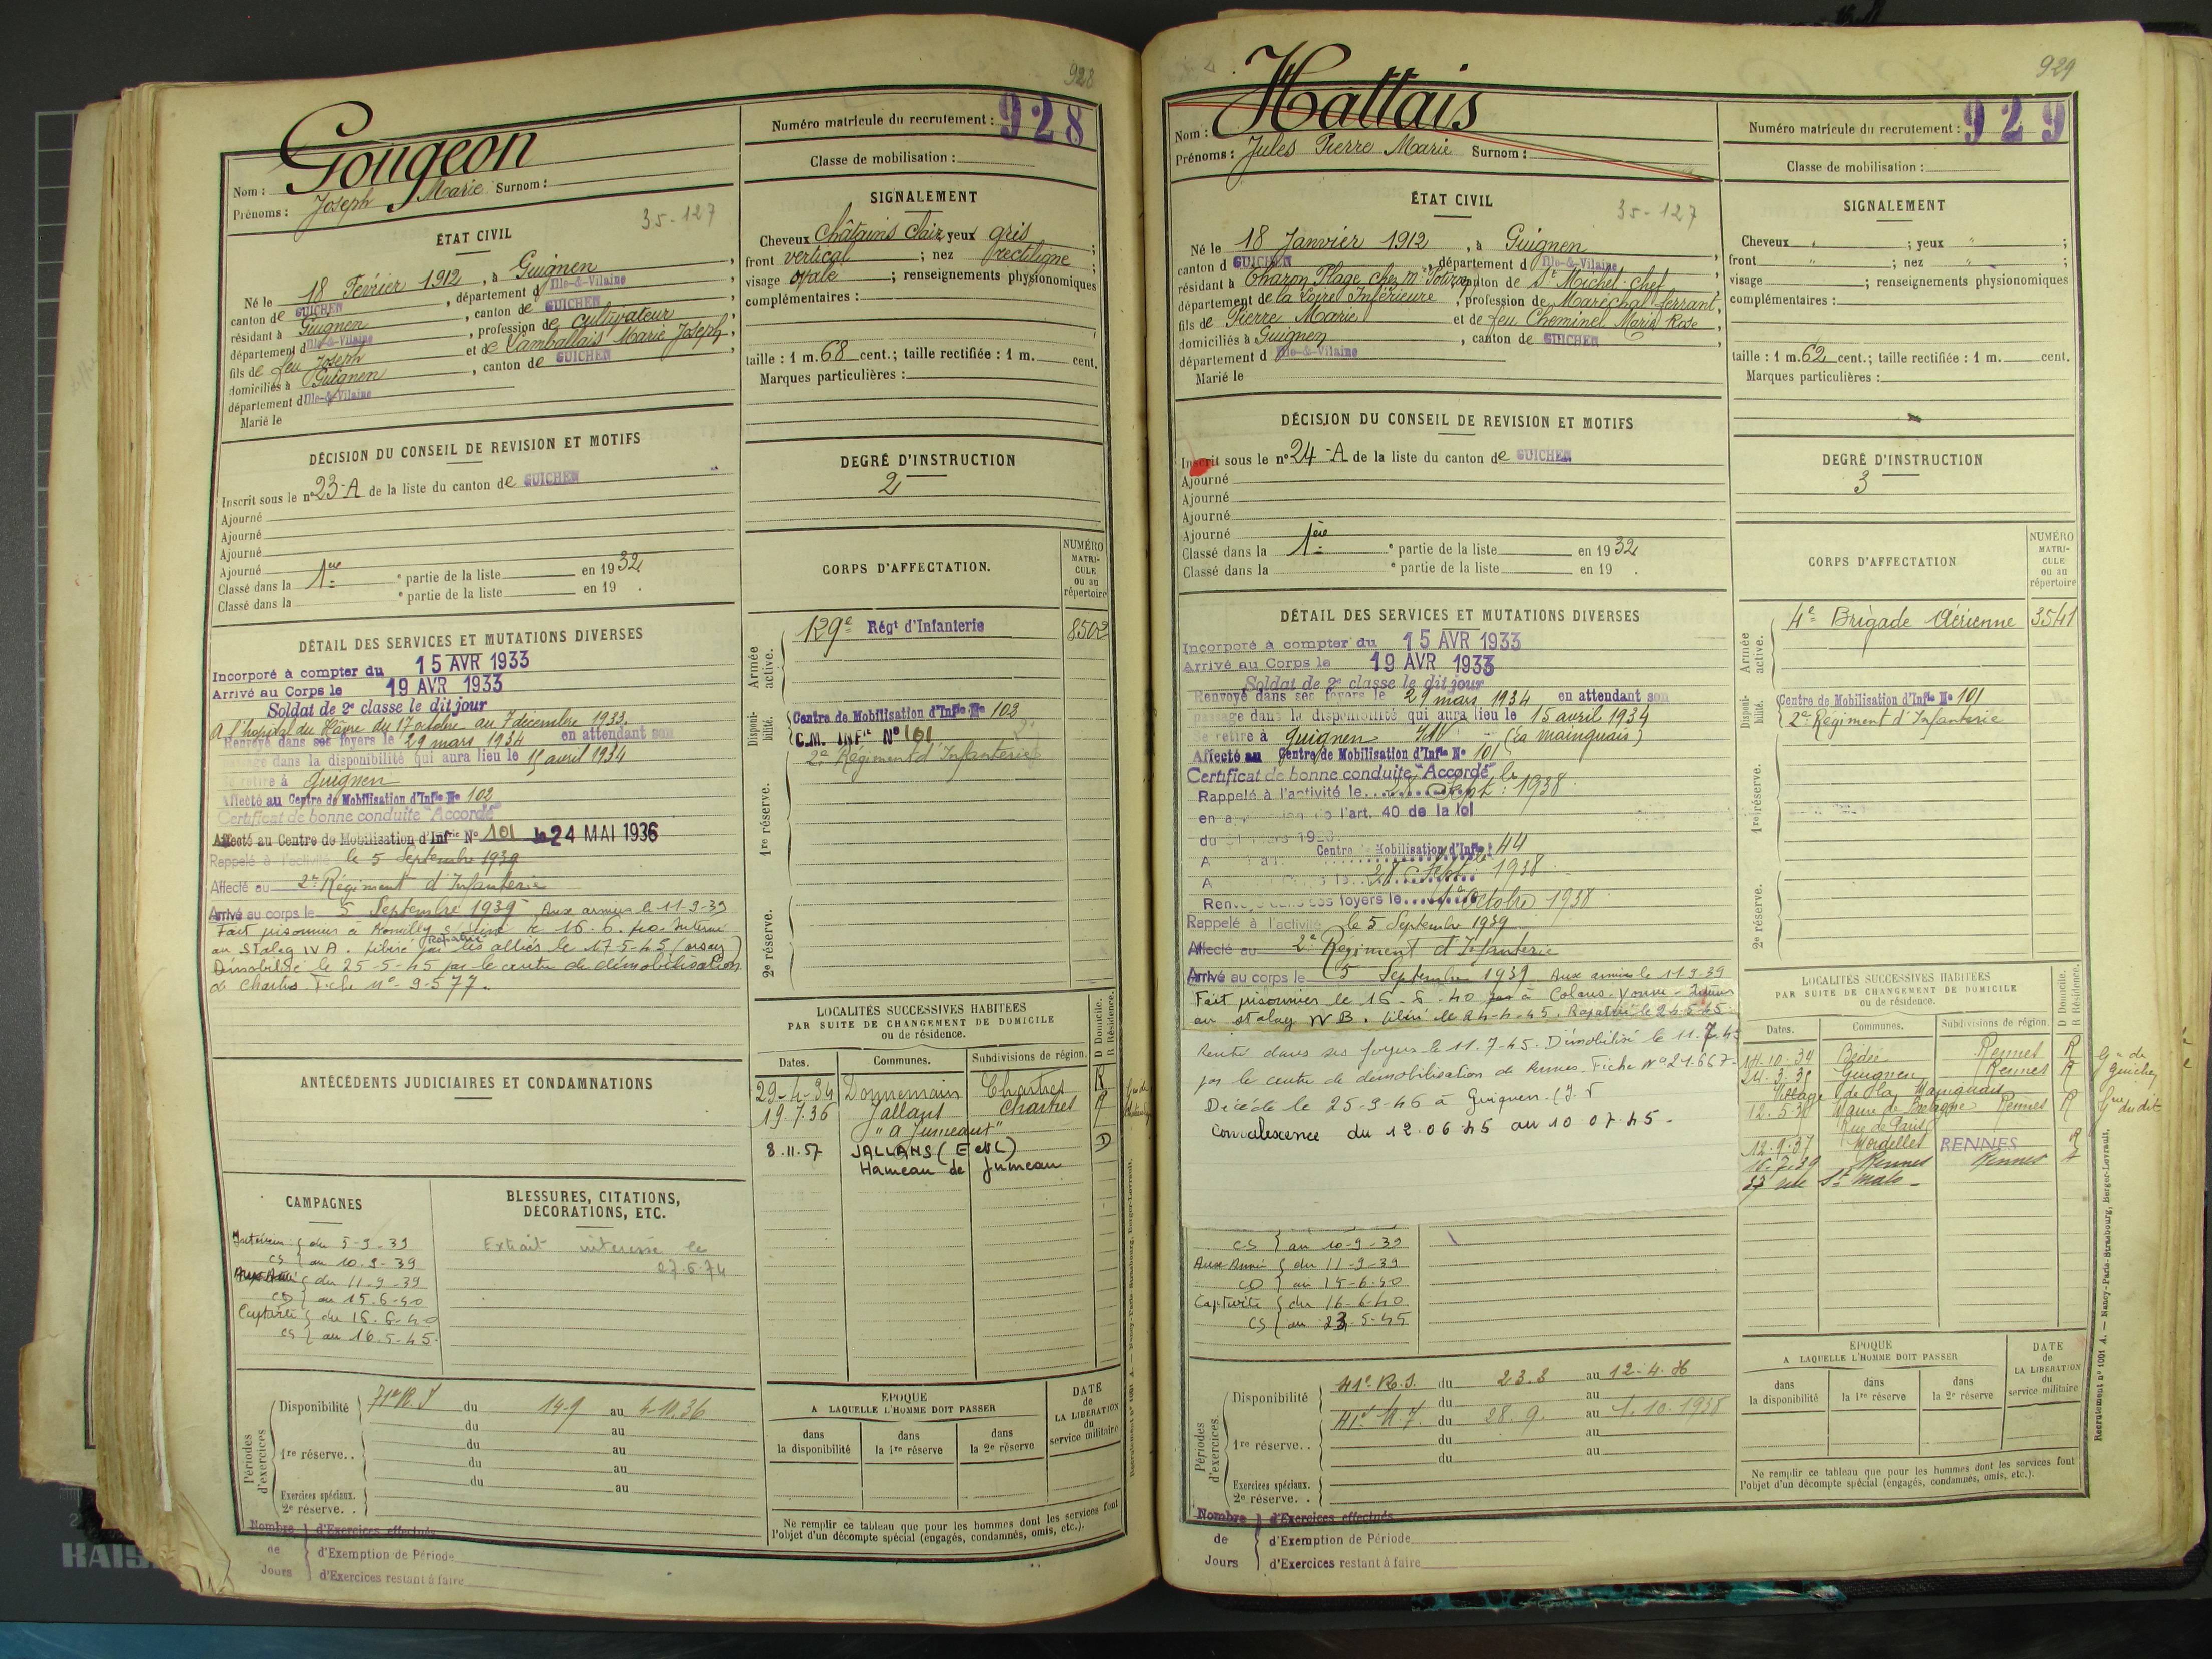 928
Gougeon
Nom :
Prénoms : Joseph Marie Surnom :
Numéro matricule du recrutement : 928
Classe de mobilisation :
35-127
ÉTAT CIVIL
Né le 18 Février 1912, à Guignen,
canton de GUICHEN, département d Ille-&-Vilaine,
résidant à Guignen, canton de GUICHEN,
département d Ille-&-Vilaine, profession de cultivateur,
fils de feu Joseph et de Lamballais Marie Joseph,
domiciliés à Guignen, canton de GUICHEN
département d Ille-&-Vilaine
Marié le
SIGNALEMENT
Cheveux châtains clair yeux gris ;
front vertical ; nez rectiligne ;
visage ovale ; renseignements physionomiques
complémentaires :
taille : 1 m. 68 cent.; taille rectifiée : 1 m. cent.
Marques particulières :
DÉCISION DU CONSEIL DE REVISION ET MOTIFS
Inscrit sous le n° 23-A de la liste du canton de GUICHEN
Ajourné
Ajourné
Ajourné
Ajourné
Classé dans la 1ère e partie de la liste en 1932
Classé dans la e partie de la liste en 19 .
DEGRÉ D'INSTRUCTION
2
DÉTAIL DES SERVICES ET MUTATIONS DIVERSES
Incorporé à compter du 15 AVR 1933
Arrivé au Corps le 19 AVR 1933
Soldat de 2e classe le dit jour
A l'hopital du Hâvre du 17 octobre au 7 décembre 1933.
Renvoyé dans ses foyers le 29 mars 1934 en attendant son
passage dans la disponibilité qui aura lieu le 15 avril 1934
Se retire à Guignen
Affecté au Centre de Mobilisation d'Infie No 102
Certificat de bonne conduite "Accordé"
Affecté au Centre de Mobilisation d'Infrie No 101 le 24 MAI 1936
Rappelé à l'activité le 5 Septembre 1939
Affecté au 2e Régiment d'Infanterie
Arrivé au corps le 5 Septembre 1939 Aux armées le 11-9-39
Fait prisonnier à Romilly s/ le 16.6. Interné
au Stalag IV A. Libéré par les alliés le 17-5-45 (orsay)
Rapatrié
Démobilisé le 25-5-45 par le centre de démobilisation
de Chartres Fiche n° 9-577.
CORPS D'AFFECTATION.
NUMÉRO MATRICULE ou au répertoire
Armée active.
129e Régt d'Infanterie 8502
Disponibilité.
Centre de Mobilisation d'Infie No 102
C.M. INFie No 101
2e Régiment d'Infanterie
1re réserve.
2e réserve.
ANTÉCÉDENTS JUDICIAIRES ET CONDAMNATIONS
LOCALITÉS SUCCESSIVES HABITÉES
PAR SUITE DE CHANGEMENT DE DOMICILE
ou de résidence.
D Domicile. R Résidence.
Dates. Communes. Subdivisions de région.
29-4-34 Donnemain Chartres R
19.7.36 Jallans Chartres R
"à Jumeaux"
8.11.57 JALLANS (E et L) D
Hameau de Jumeau
CAMPAGNES
Intérieur { du 5-9-39
CS { au 10.9-39
{ du 11-9-39
CD { au 15.6-40
Captivité { du 16.6-40
CS { au 16-5-45.
BLESSURES, CITATIONS,
DÉCORATIONS, ETC.
Extrait intéressé le
27.6.74
Périodes d'exercices.
Disponibilité 71e R.I du 14-9 au 4-10.36
du au
1re réserve. . du au
du au
du au
Exercices spéciaux.
2e réserve. .
Nombre de Jours
d'Exercices effectués
d'Exemption de Période
d'Exercices restant à faire
EPOQUE
A LAQUELLE L'HOMME DOIT PASSER
dans la disponibilité
dans la 1re réserve
dans la 2e réserve
DATE de LA LIBÉRATION du service militaire
Ne remplir ce tableau que pour les hommes dont les services font
l'objet d'un décompte spécial (engagés, condamnés, omis, etc.).
929
Hattais
Nom :
Prénoms : Jules Pierre Marie Surnom :
Numéro matricule du recrutement : 929
Classe de mobilisation :
35-127
ÉTAT CIVIL
Né le 18 Janvier 1912, à Guignen,
canton d GUICHEN, département d Ille-&-Vilaine,
résidant à Tharon Plage chez Mr canton de St Michel-chef
département de la Loire Inférieure, profession de Maréchal ferrant,
fils de Pierre Marie et de feu Cheminel Marie Rose,
domiciliés à Guignen, canton de GUICHEN
département d Ille-&-Vilaine
Marié le
SIGNALEMENT
Cheveux " ; yeux " ;
front " ; nez " ;
visage ; renseignements physionomiques
complémentaires :
taille : 1 m. 62 cent.; taille rectifiée : 1 m. cent.
Marques particulières :
DÉCISION DU CONSEIL DE REVISION ET MOTIFS
Inscrit sous le n° 24-A de la liste du canton de GUICHEN
Ajourné
Ajourné
Ajourné
Ajourné
Classé dans la 1ère e partie de la liste en 1932
Classé dans la e partie de la liste en 19 .
DEGRÉ D'INSTRUCTION
3
DÉTAIL DES SERVICES ET MUTATIONS DIVERSES
Incorporé à compter du 15 AVR 1933
Arrivé au Corps le 19 AVR 1933
Soldat de 2e classe le dit jour
Renvoyé dans ses foyers le 29 mars 1934 en attendant son
passage dans la disponibilité qui aura lieu le 15 avril 1934
Se retire à Guignen I&V (La Mainguais)
Affecté au Centre de Mobilisation d'Infie No 101
Certificat de bonne conduite "Accordé"
Rappelé à l'activité le Sept. 1938
en de l'art. 40 de la loi
du 31 mars 1928
Centre de Mobilisation d'Infie 44
28 Sept 1938
Renvoyé dans ses foyers le 1er Octobre 1938
Rappelé à l'activité le 5 Septembre 1939
Affecté au 2e Régiment d'Infanterie
Arrivé au corps le 5 Septembre 1939 Aux armées le 11-9-39
Fait prisonnier le 16-6-40 à Yonne - Interné
au stalag IV B. libéré le 24-4-45. Rapatrié le 24-5-45.
Rentré dans ses foyers le 11.7-45. Démobilisé le 11.7.45
par le centre de démobilisation de Rennes. Fiche No 21.667-
Décédé le 25-9-46 à Guignen. (I. V
Convalescence du 12.06.45 au 10 07.45-
CORPS D'AFFECTATION
NUMÉRO MATRICULE ou au répertoire
Armée active.
4e Brigade Aérienne 3541
Disponibilité.
Centre de Mobilisation d'Infie No 101
2e Régiment d'Infanterie
1re réserve.
2e réserve.
LOCALITÉS SUCCESSIVES HABITÉES
PAR SUITE DE CHANGEMENT DE DOMICILE
ou de résidence.
D Domicile. R Résidence.
Dates. Communes. Subdivisions de région.
14.10.34 Bédée Rennes R
24.3.35 Guignen Rennes R
Village de la Mainguais
12.5.36 Maure de Bretagne Rennes R
Rue de Paris
12.9.37 Mordelles RENNES R
16.7.39 Rennes Rennes R
37 rue St Malo -
CS { au 10-9-39
Aux Armées { du 11-9-39
CD { au 15-6-40
Captivité { du 16-6-40
CS { au 23.5-45
Périodes d'exercices.
Disponibilité 41e R.I. du 23.3 au 12-4.36
du au
41e R.I. du 28.9. au 1.10.1938
1re réserve. . du au
du au
Exercices spéciaux.
2e réserve. .
Nombre de Jours
d'Exercices effectués
d'Exemption de Période
d'Exercices restant à faire
EPOQUE
A LAQUELLE L'HOMME DOIT PASSER
dans la disponibilité
dans la 1re réserve
dans la 2e réserve
DATE de LA LIBÉRATION du service militaire
Ne remplir ce tableau que pour les hommes dont les services font
l'objet d'un décompte spécial (engagés, condamnés, omis, etc.).
Recrutement n° 1001 A. — Nancy-Paris-Strasbourg, Berger-Levrault.